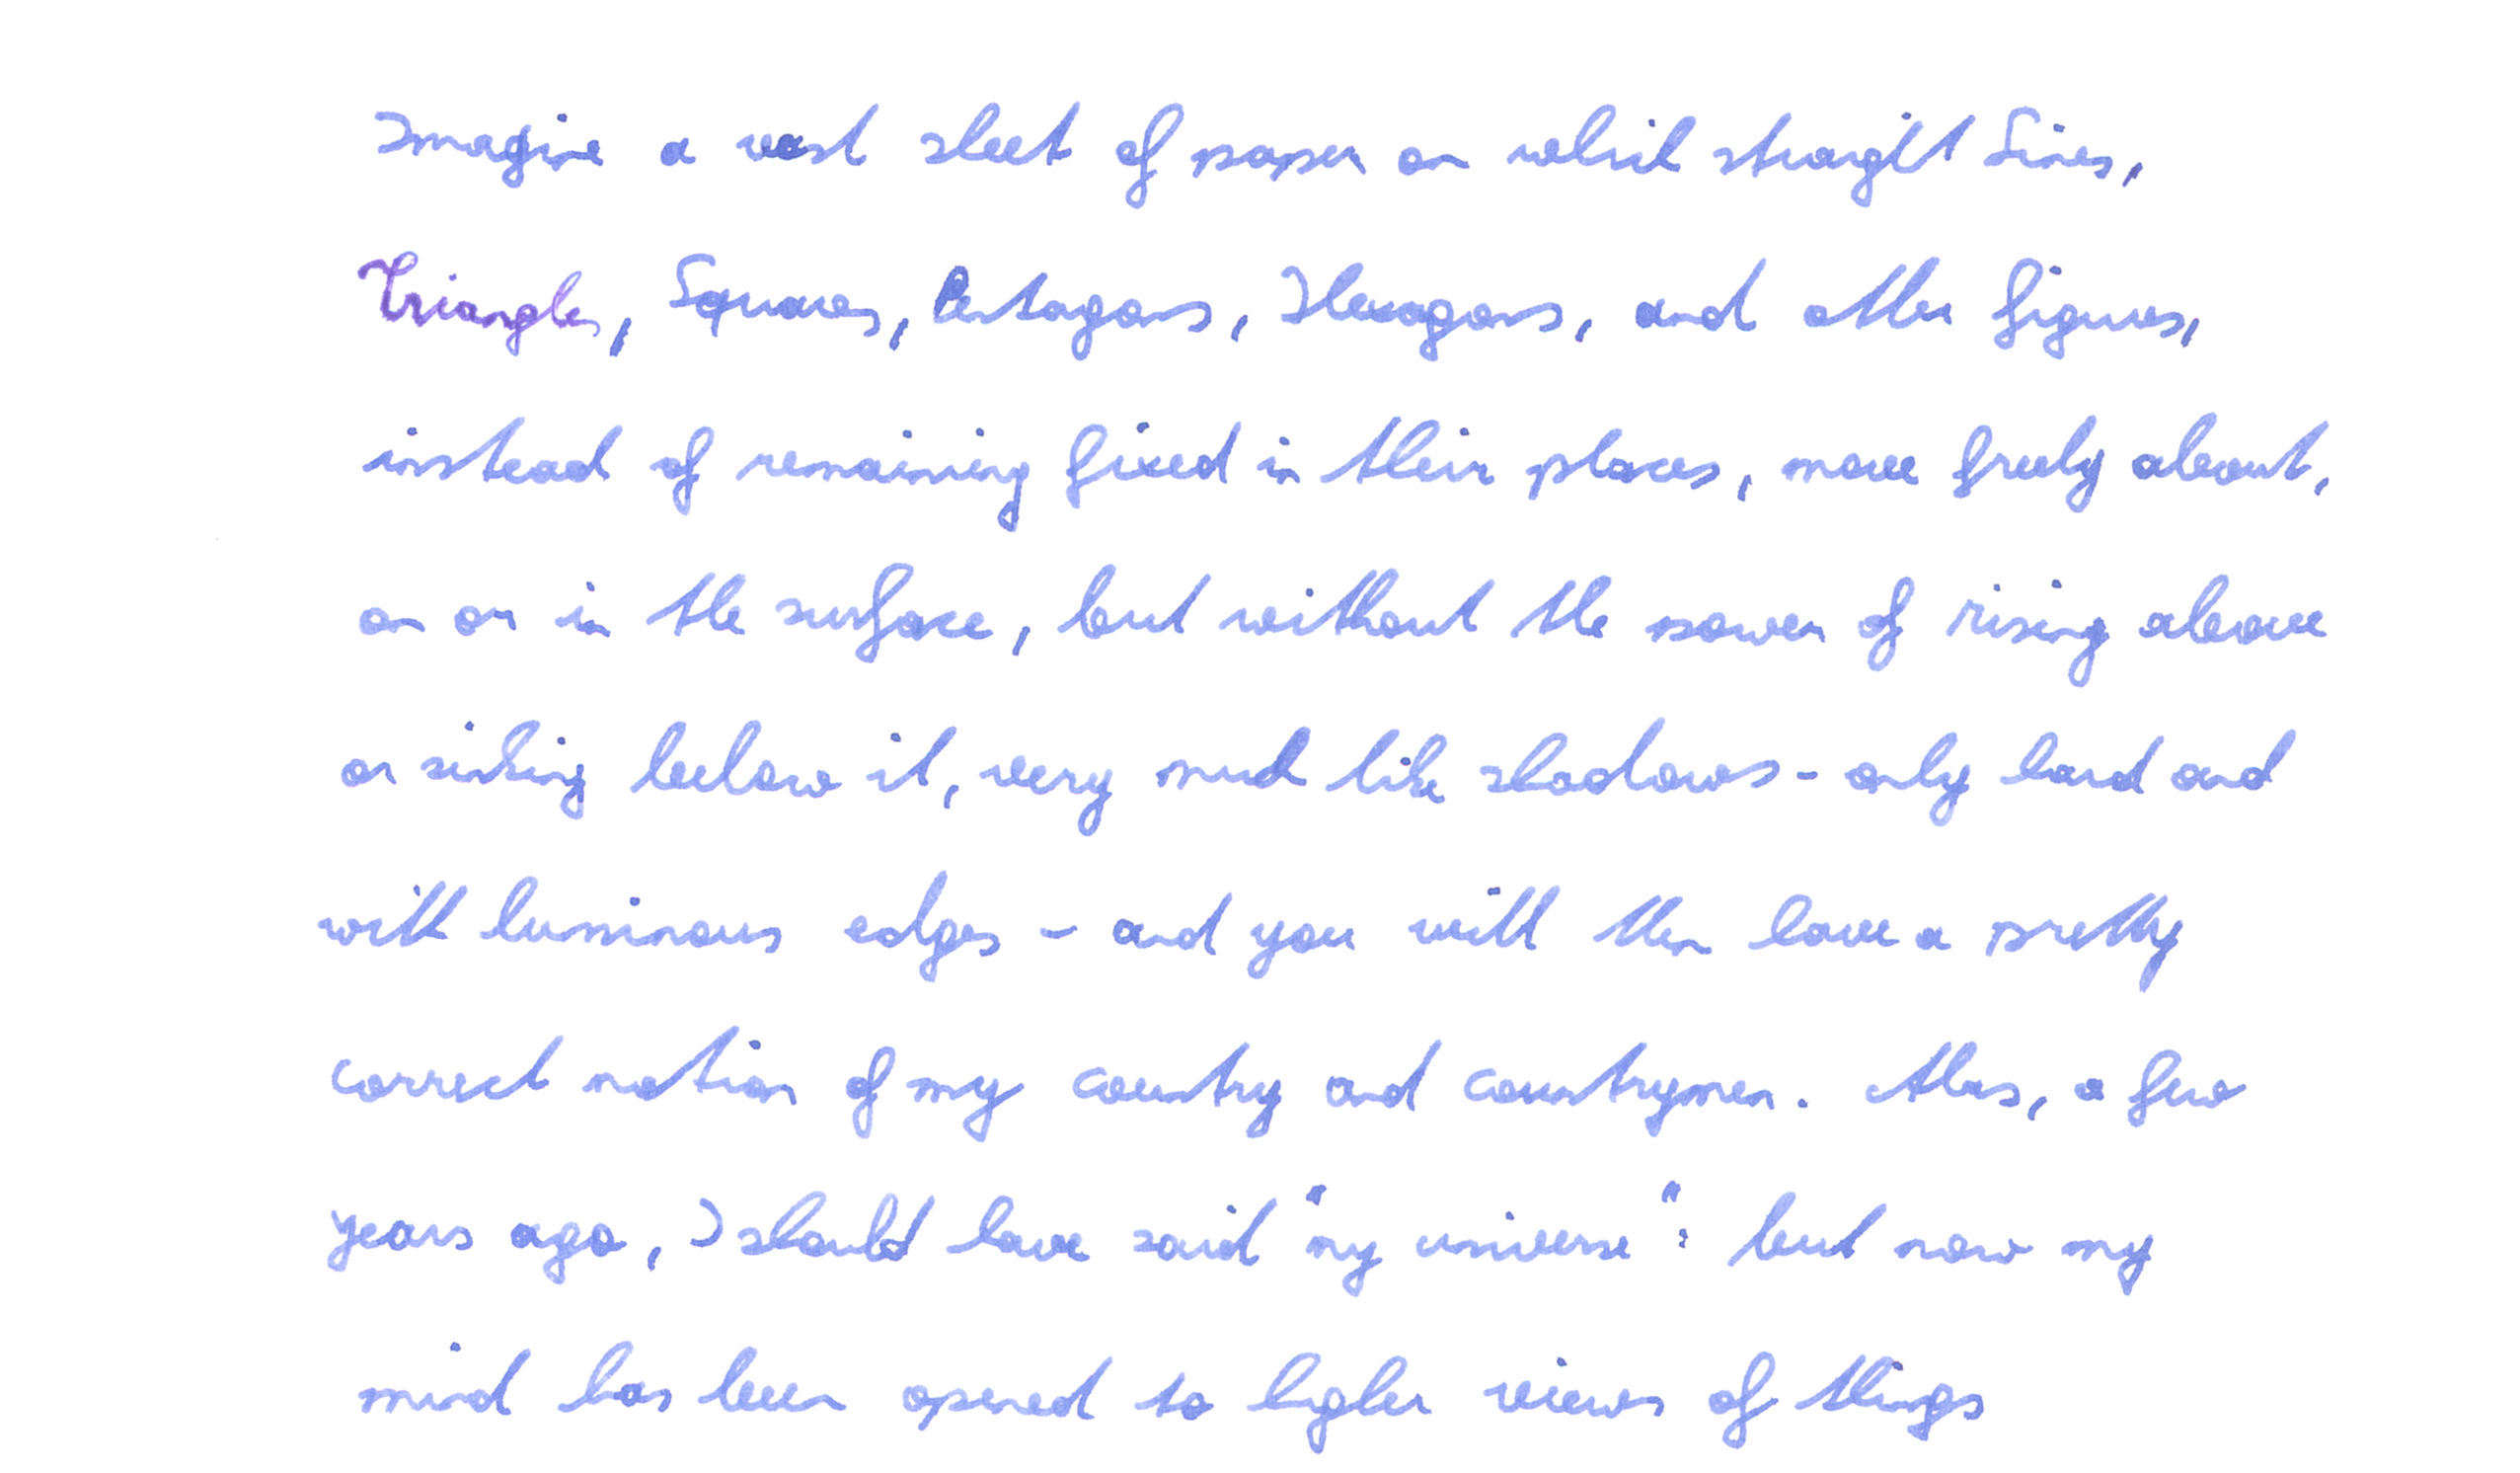 Imagine a vast sheet of paper on which straight Lines,
Triangles, Squares, Pentagons, Hexagons, and other figures,
instead of remaining fixed in their places, move freely about,
on or in the surface, but without the power of rising above
or sinking below it, very much like shadows - only hard and
with luminous edges - and you will then have a pretty
correct notion of my country and countrymen. Alas, a few
years ago, I should have said "my universe": but now my
mind has been opened to higher views of things